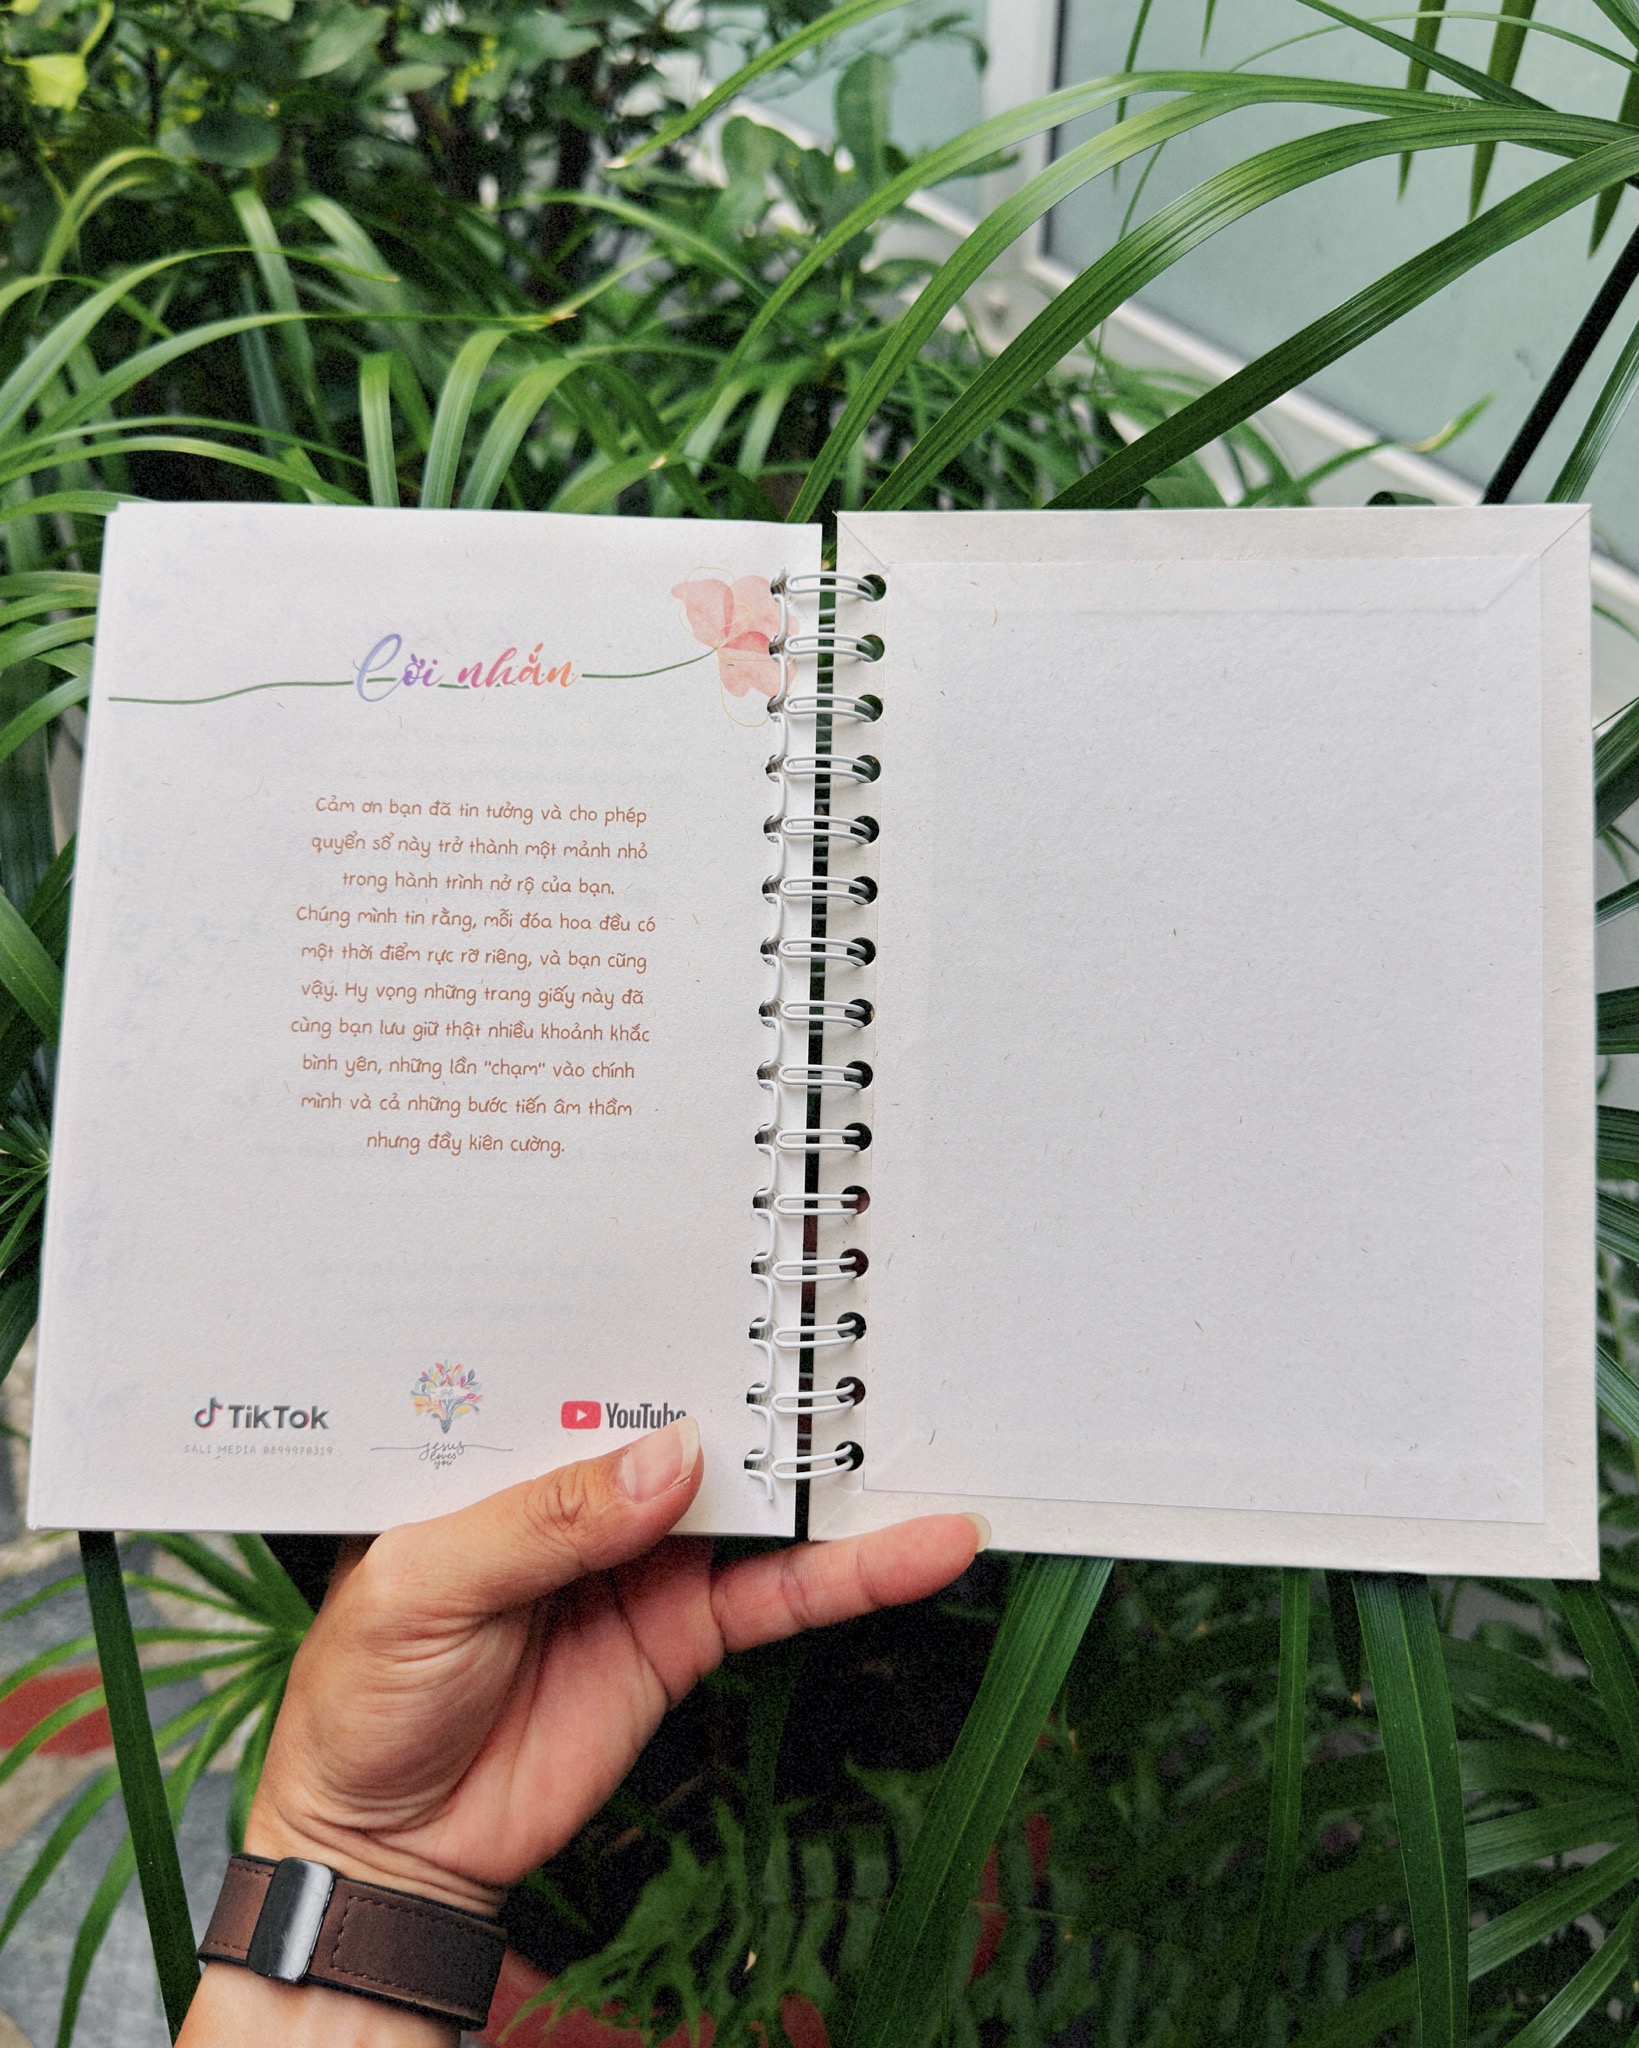 Lời nhắn
Cảm ơn bạn đã tin tưởng và cho phép
quyển sổ này trở thành một mảnh nhỏ
trong hành trình nở rộ của bạn.
Chúng mình tin rằng, mỗi đóa hoa đều có
một thời điểm rực rỡ riêng, và bạn cũng
vậy. Hy vọng những trang giấy này đã
cùng bạn lưu giữ thật nhiều khoảnh khắc
bình yên, những lần "chạm" vào chính
mình và cả những bước tiến âm thầm
nhưng đầy kiên cường.
TikTok
SALI MEDIA 0899970319
Jesus
loves
you
YouTube